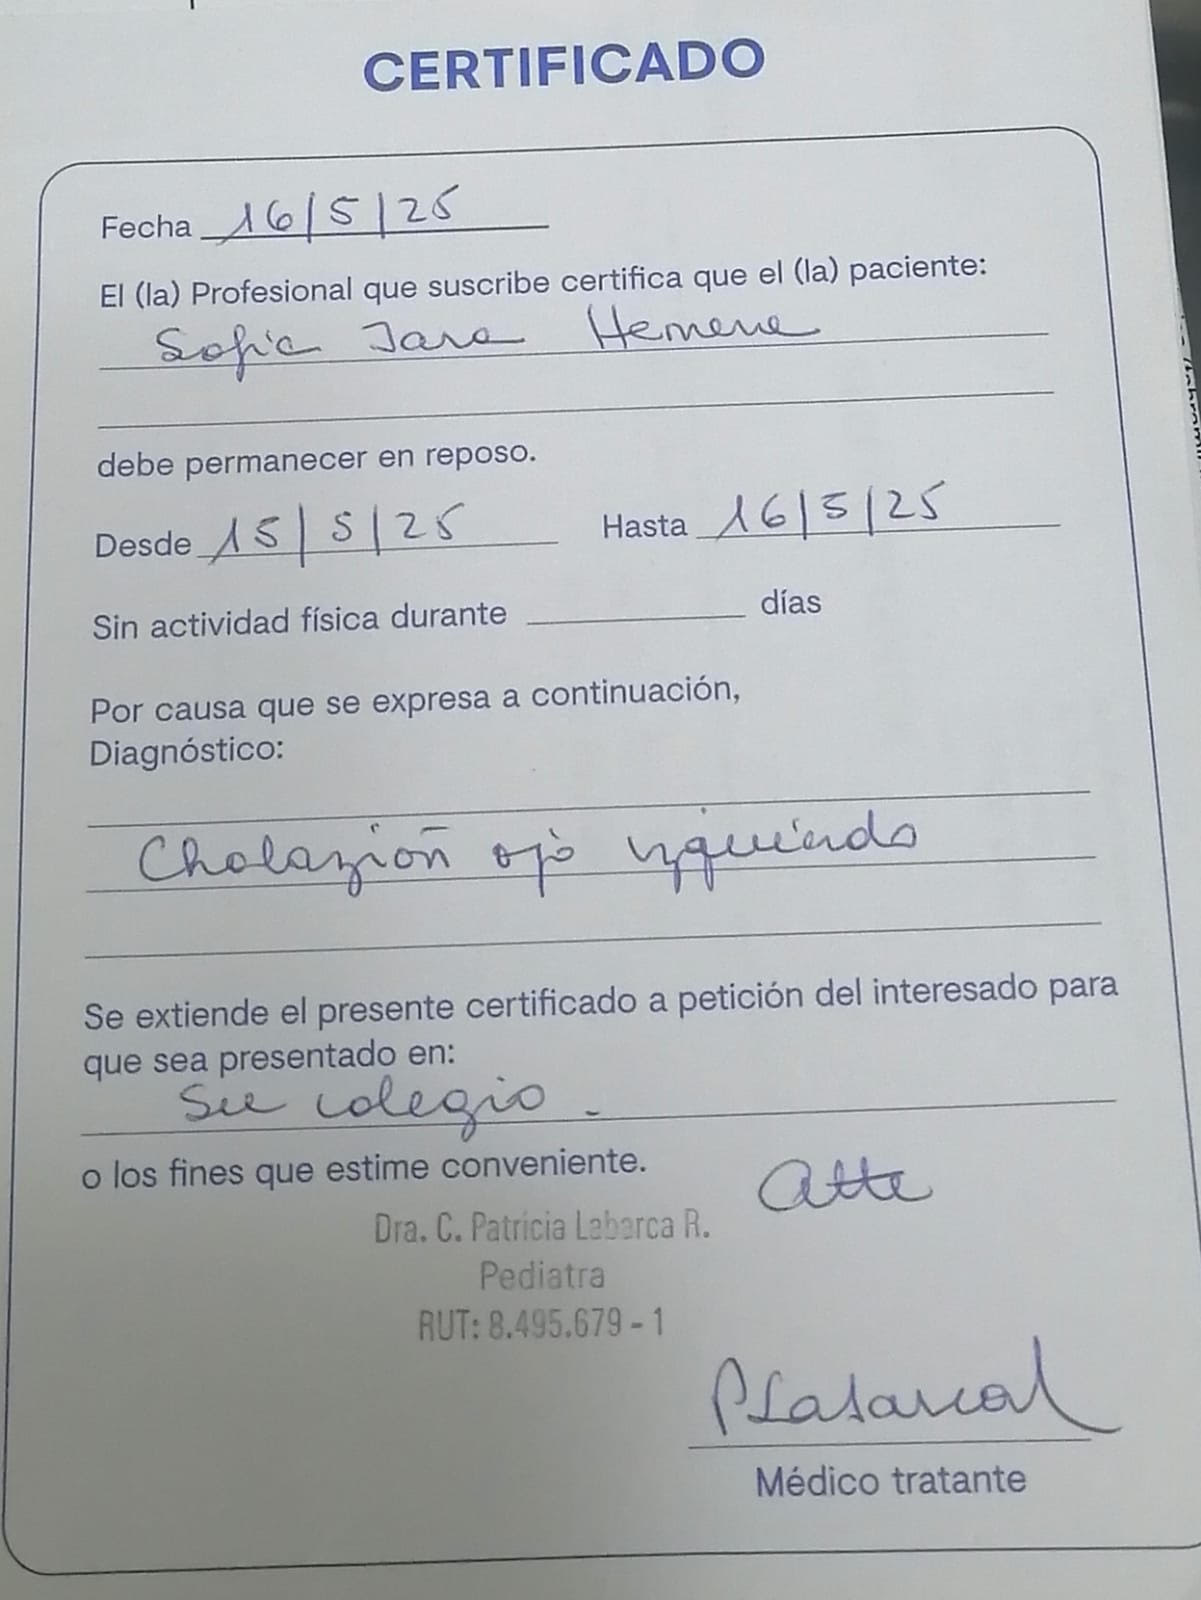 CERTIFICADO
Fecha 16/5/25
El (la) Profesional que suscribe certifica que el (la) paciente:
Sofia Jara
debe permanecer en reposo.
Desde 15/5/25 Hasta 16/5/25
Sin actividad física durante días
Por causa que se expresa a continuación,
Diagnóstico:
Chalazión ojo izquierdo
Se extiende el presente certificado a petición del interesado para
que sea presentado en:
Su colegio.
o los fines que estime conveniente.
Atte
Dra. C. Patricia Labarca R.
Pediatra
RUT: 8.495.679-1
PLabarcaL
Médico tratante